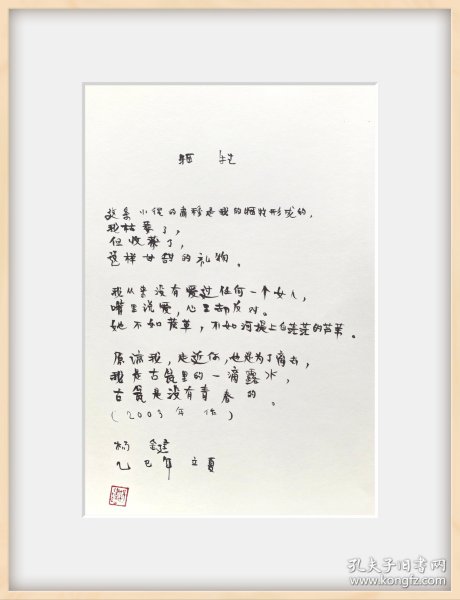 这条小的是我的形成的,
我枯萎了,
但收获了,
这样甘甜的礼物。
我从来没有爱过任何一个女人,
嘴里说爱,心里却反对。
她不如荒草,不如河堤上白茫茫的芦苇。
原谅我,走近你,也是为了离去,
我是古瓮里的一滴露水,
古瓮是没有青春的。
(2003年作)
杨键
乙巳年 立夏
孔夫子旧书网
www.kongfz.com